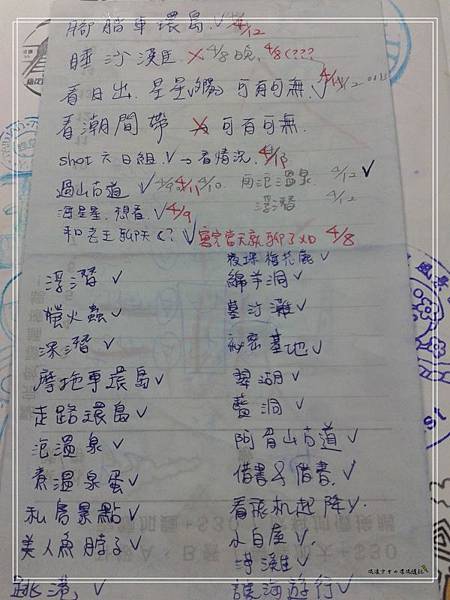 腳踏車環島 ✓ 4/12
睡沙灘 ✗ 4/8晚, 4/8(???
看日出.星星 可有可無 ✓ 4/12
看潮間帶 ✗ 可有可無.
shot 六日組 ✓ → 看情況 ✓
過山古道 ✓ 4/9 4/11 4/10. 泡溫泉. 4/12 ✓
浮潛 4/12
海星星.想看. ✓ 4/9
和老王聊天<? ✓ 寫完當天就聊了XD 4/8
夜探梅花鹿
浮潛 ✓
綿羊洞 ✓
螢火蟲 ✓
深潛 ✓
祕密基地 ✓
摩拖車環島 ✓
翠湖 ✓
走路環島 ✓
藍洞 ✓
泡溫泉 ✓
阿眉山古道 ✓
煮溫泉蛋 ✓
借書&借書 ✓
私房景點 ✓
看飛机起降 ✓
美人魚脖子 ✓
小白屋 ✓
跳港 ✓
遊行 ✓